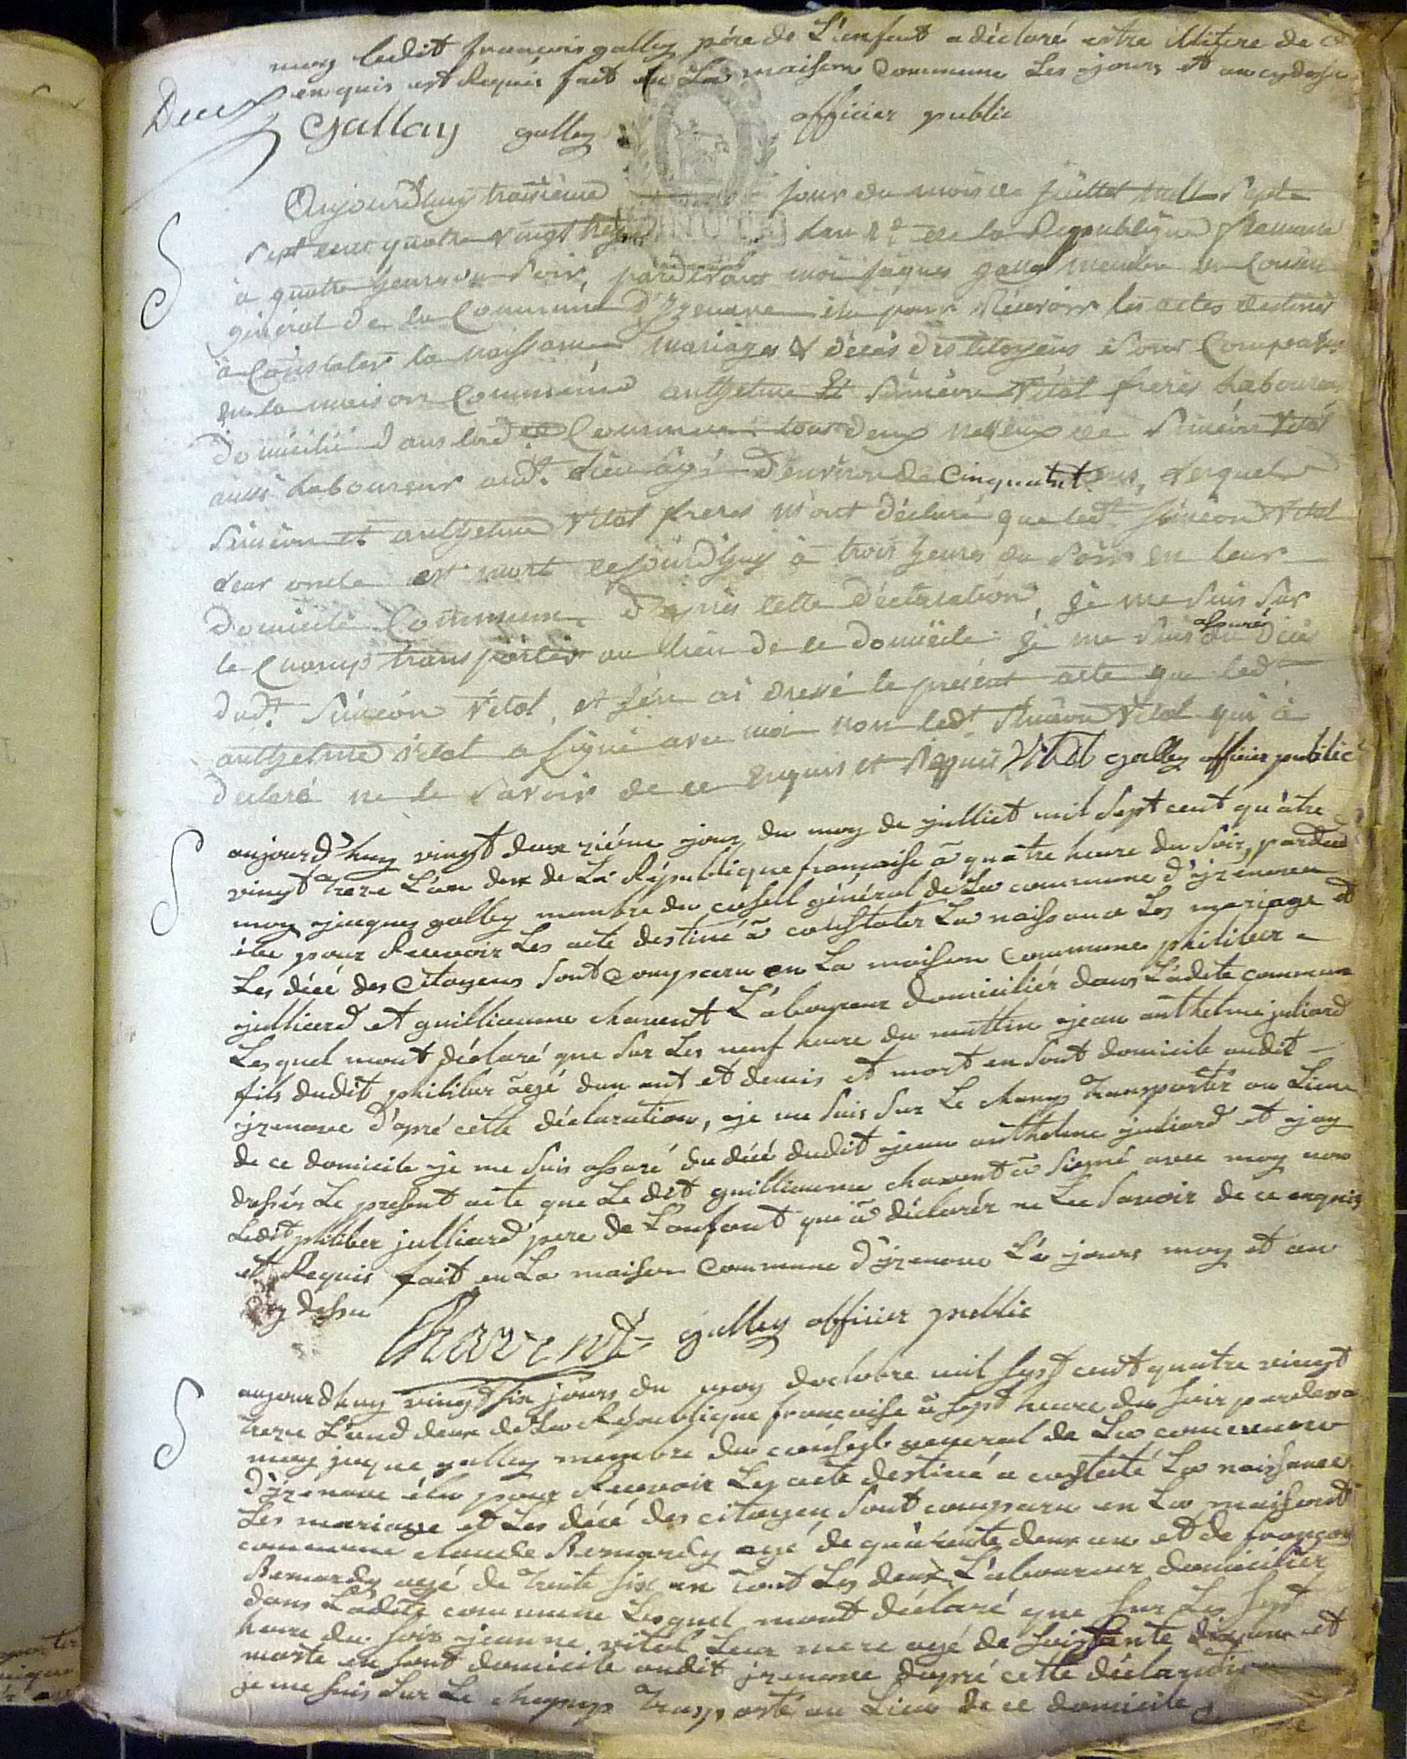 moy ledit françois galley pére de L'enfant a déclaré estre illitere de ce
enquis et Requis fait en La maison Commune Les jours et an cy dessu
Deux
Gallay galley officier public
MINUTE
Aujourd'huy troisième jour du mois de Juillet mil sept
sept cent quatre vingt treize l'an 2e de la Republique françaisse
à quatre heures du soir, pardevant moi jaques galley membre du Conseil
général de la Commune d'Izenave élu pour Recevoir les actes destinés
à Constater la naissance mariages & décés des Citoyens sont Comparus
en la maison Commune anthelme Et Siméon Vital freres Laboureurs
domicilié dans lad. Commune tous deux neveux de Siméon Vital
aussi Laboureur audt. Lieu âgé d'environ de cinquante ans, lesquels
Siméon et anthelme Vital freres m'ont déclaré que ledt Siméon Vital
leur oncle est mort cejourd'huy à trois heures du soir en leur
domicile Commun, D'après cette déclaration, je me suis sur
le champ transporter au lieu de ce domicile je me suis assuré du décés
dudt. Siméon Vital, et j'en ai dressé le présent acte que ledt.
anthelme Vital a signé avec moi non ledt Siméon Vital qui à
declaré ne le savoir de ce Enquis et Requis Vital galley officier public
aujourd'huy vingt deuxziéme jour du moy de julliet mil sept cent quatre
vingt treze L'an deux de La République françoise â quatre heure du soir, pardevd
moy jacques galley membre du conseil général de La commune d'izenave
élu pour Recevoir Les acte destiné â constater La naissance Les mariage et
Les décé des Citoyens sont comparu en La maison commune philiber
julliard et guilliaume charvent L'aboureur domiciliér dans Ladite commune
Lesquel mont déclaré que sur Les neuf heure du mattin jean anthelme juliard
fils dudit philiber âgé dun ant et demis et mort en sont domicile audit
izenave d'apré cette déclaration, je me suis sur Le champ transporter au Lieux
de ce domicile je me suis assuré du décé dudit jean anthelme juliard et jay
dressés Le present acte que Le dit guilliaume charvent â signé avec moy non
Ledit philiber julliard père de L'enfant qui â déclarér ne Le savoir de ce enquis
et Requis fait en La maison commune d'izenave Les jours moy et an
cy dessu
Charvent galley officier public
aujourdhuy vingt six jours du moy doctobre mil sept cent quatre vingt
treze L'and deux de La République françoise â sept heure du soir pardeva
moy jaque galley membre du conseil general de La commune
d'izenave élu pour Recevoir Les acte destiné a constaté La naissance
Les mariage et Les décé des citoyen sont comparu en La maison
commune claude Bernardy agé de quarente deux an et de françois
Bernardy agé de trente six an tout Les deux L'aboureur domiciliér
dans Ladite commune Lesquel mont déclaré que sur Les sept
heure du soir jeanne vital Leur mere agé de soissante dix an et
morte en sont domicile audit izenave dapré cette déclaration
je me suis sur Le champ transporté au Lieu de ce domicile